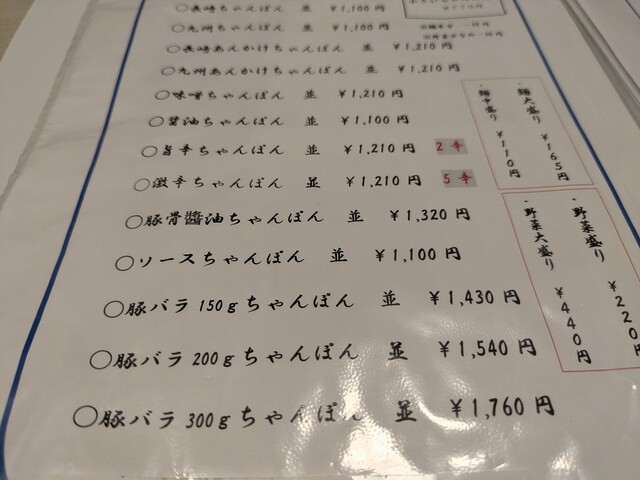 ○長崎ちゃんぽん 並 ¥1,100円
○九州ちゃんぽん 並 ¥1,100円
○長崎あんかけちゃんぽん 並 ¥1,210円
○九州あんかけちゃんぽん 並 ¥1,210円
○味噌ちゃんぽん 並 ¥1,210円
○醤油ちゃんぽん 並 ¥1,100円
○旨辛ちゃんぽん 並 ¥1,210円 2辛
○激辛ちゃんぽん 並 ¥1,210円 5辛
○豚骨醬油ちゃんぽん 並 ¥1,320円
○ソースちゃんぽん 並 ¥1,100円
○豚バラ150gちゃんぽん 並 ¥1,430円
○豚バラ200gちゃんぽん 並 ¥1,540円
○豚バラ300gちゃんぽん 並 ¥1,760円
・麺大盛り ¥165円
・麺中盛り ¥110円
・野菜盛り ¥220円
・野菜大盛り ¥440円